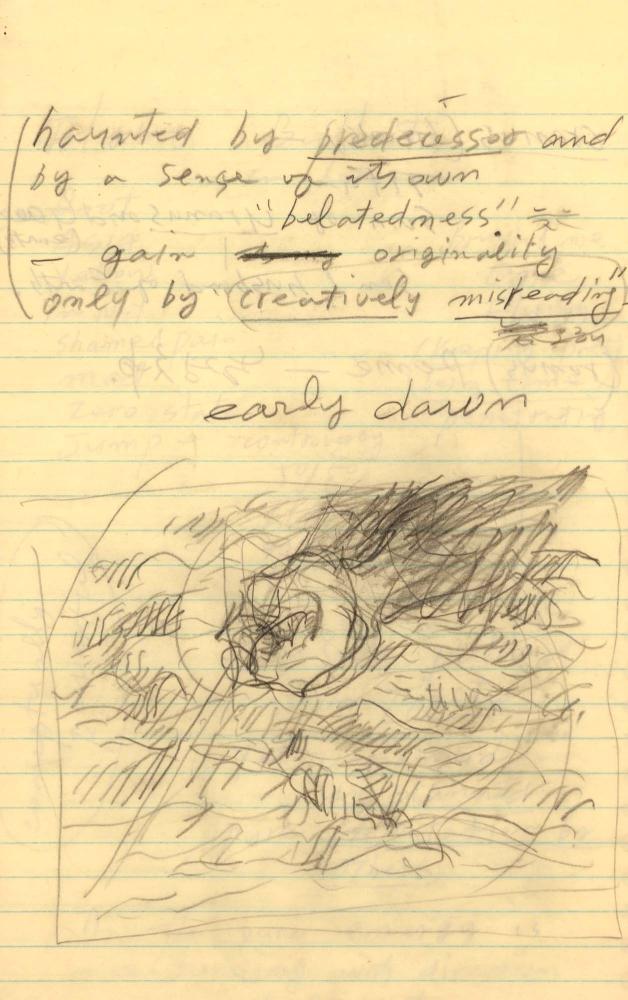 haunted by predecessor and
by a sense of its own
"belatedness"
– gain originality
only by (creatively misreading"
early dawn